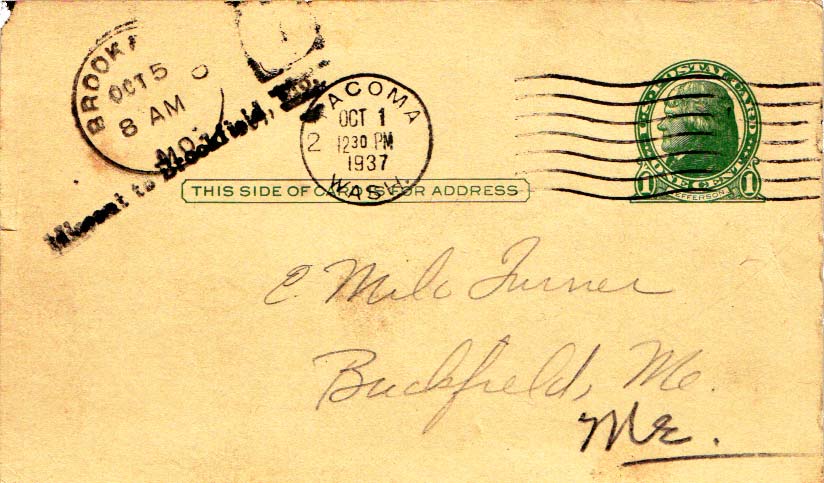 BROOKF
OCT 5
8 AM
MO.
Missent to Brookfield, Mo.
TACOMA
OCT 1
2 1230 PM
1937
WASH.
THIS SIDE OF CARD IS FOR ADDRESS
U.S. POSTAL CARD
1 ONE CENT 1
JEFFERSON
E. Milo Turner
Buckfield, Me.
ME.